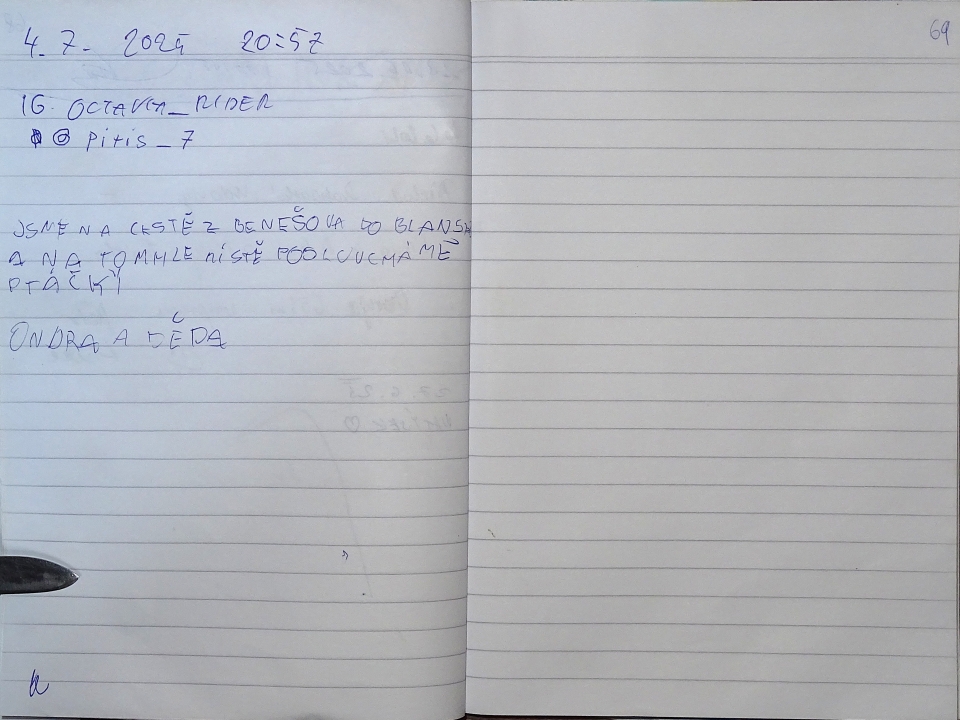 4. 7. 2025 20:57
IG: OCTAVIA_RIDER
@ pitis_7
JSME NA CESTĚ Z BENEŠOVA DO BLANSK
A NA TOMHLE MÍSTĚ POSLOUCHÁME
PTÁČKY
ONDRA A DĚDA
69